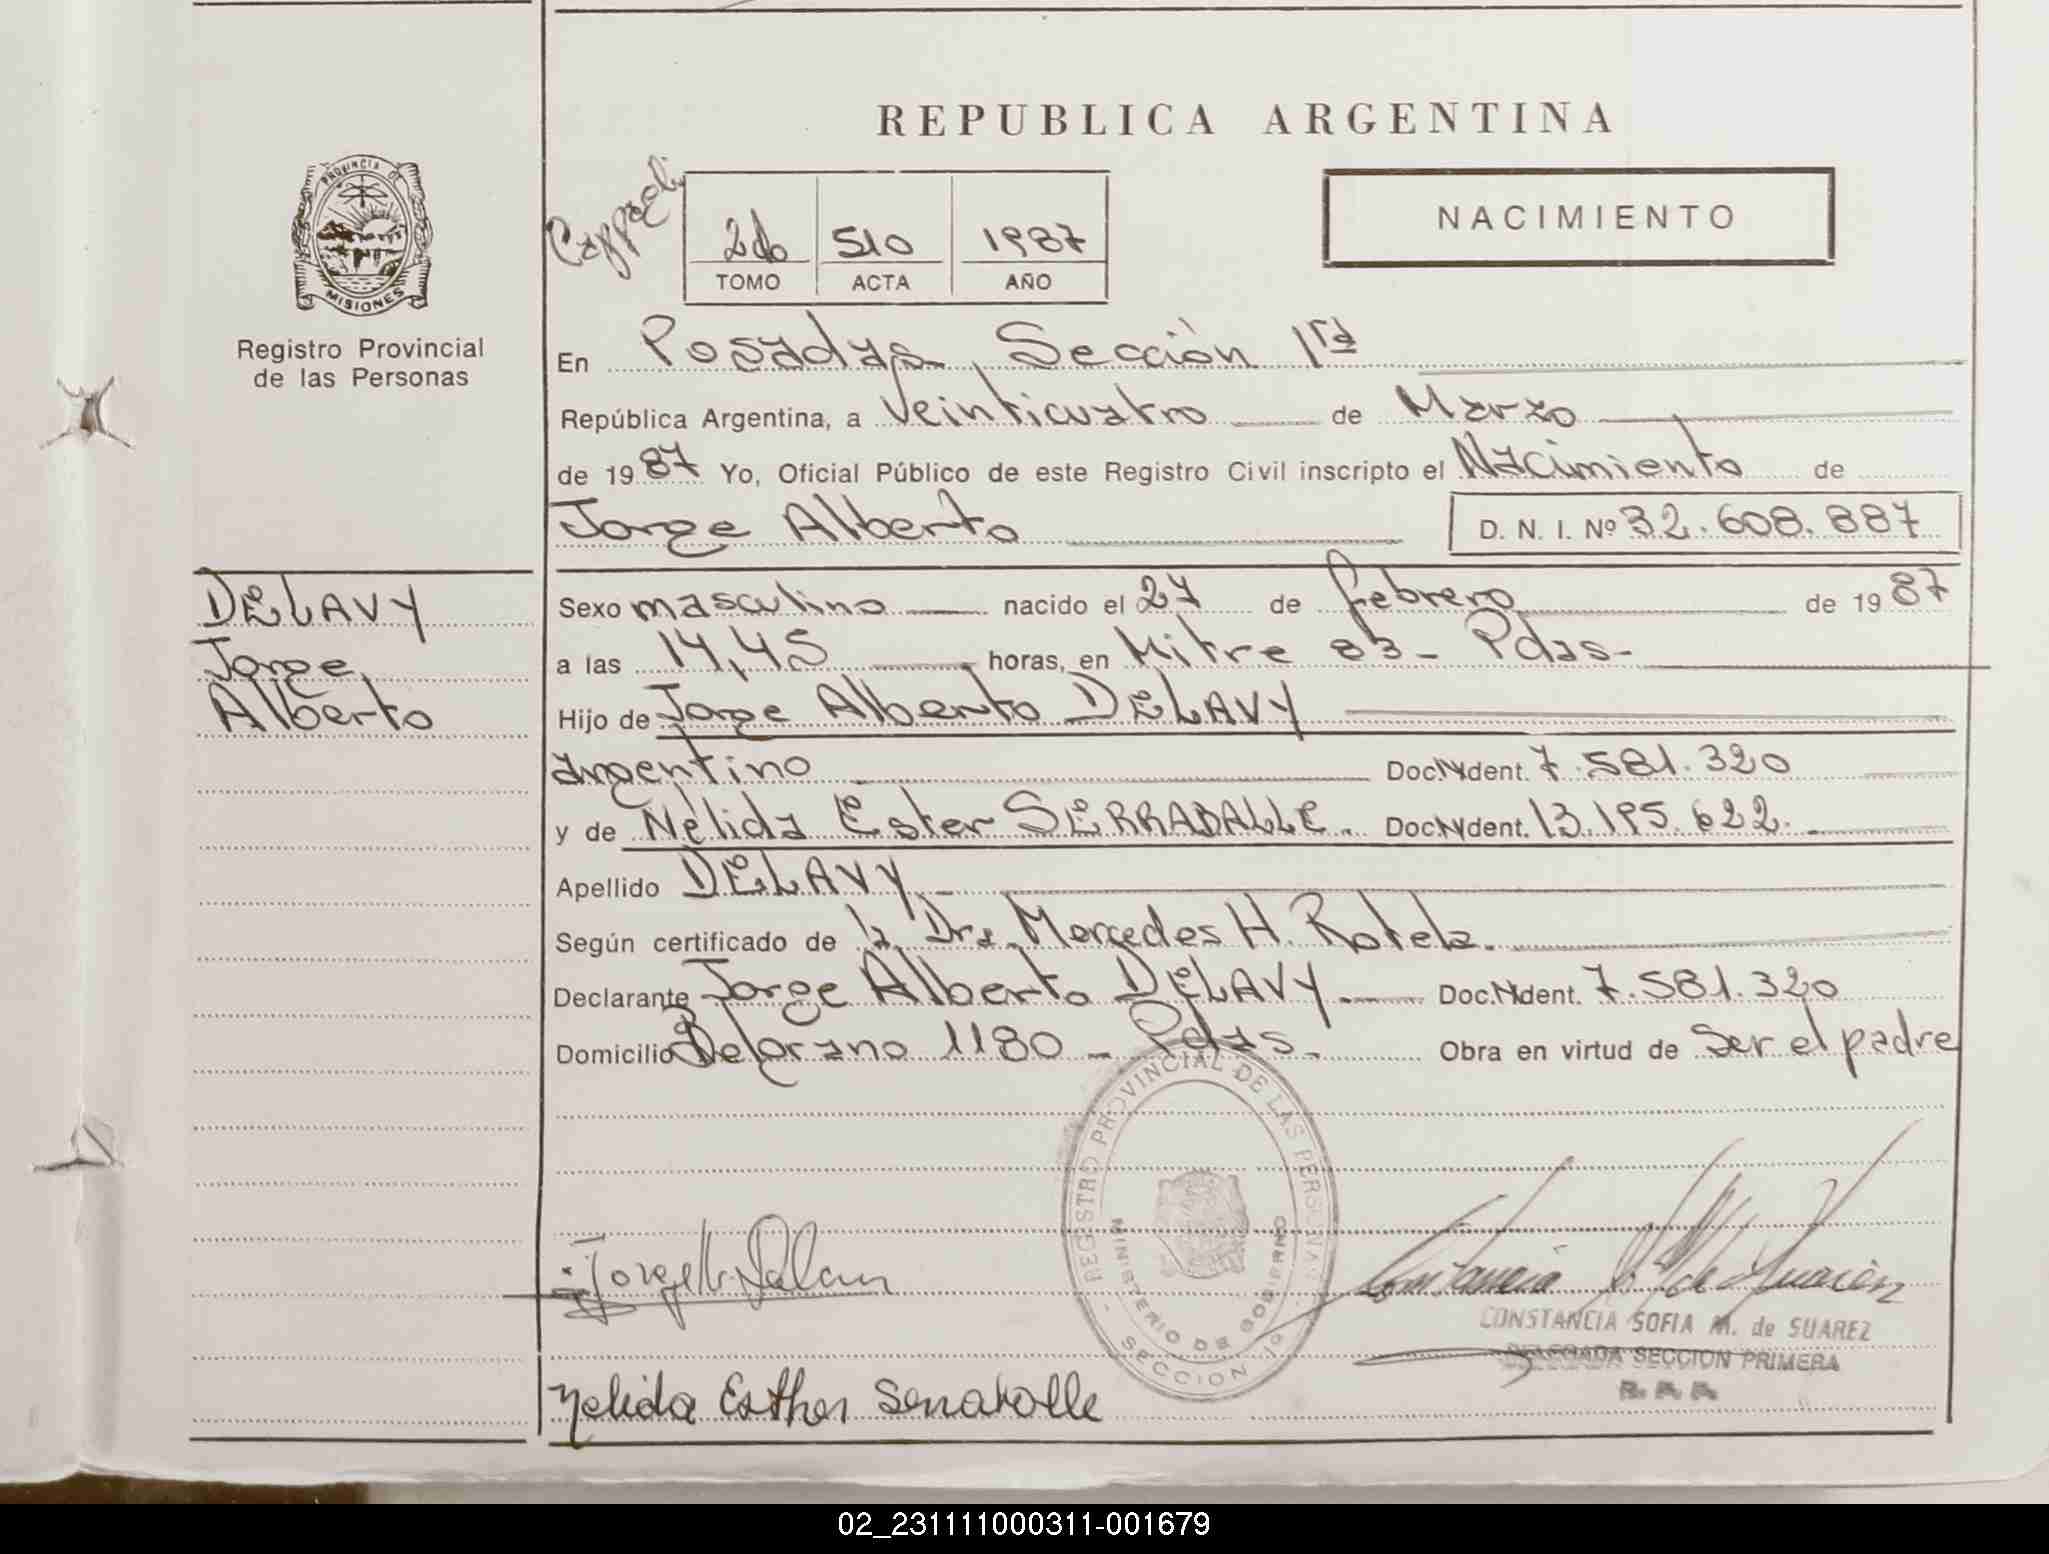 REPUBLICA ARGENTINA
PROVINCIA DE
MISIONES
Registro Provincial
de las Personas
2do 510 1987
TOMO ACTA AÑO
NACIMIENTO
En Posadas, Sección 1ra
República Argentina, a Veinticuatro de Marzo
de 1987 Yo, Oficial Público de este Registro Civil inscripto el Nacimiento de
Jorge Alberto D. N. I. Nº 32.608.887
DELAVY
Jorge
Alberto
Sexo masculino nacido el 27 de febrero de 1987
a las 14,45 horas, en Mitre 83 - Pdas-
Hijo de Jorge Alberto DELAVY
argentino Doc. Ident. 7.581.320
y de Nélida Ester SERRABALLE. Doc. Ident. 13.195.622.
Apellido DELAVY
Según certificado de la Dra. Mercedes H. Rotela.
Declarante Jorge Alberto DELAVY Doc. Ident. 7.581.320
Domicilio Belgrano 1180 - Pdas. Obra en virtud de Ser el padre
REGISTRO PROVINCIAL DE LAS PERSONAS
MINISTERIO DE GOBIERNO
SECCION 1a
CONSTANCIA SOFIA M. de SUAREZ
DELEGADA SECCION PRIMERA
Nelida Esther Serraballe
02_231111000311-001679